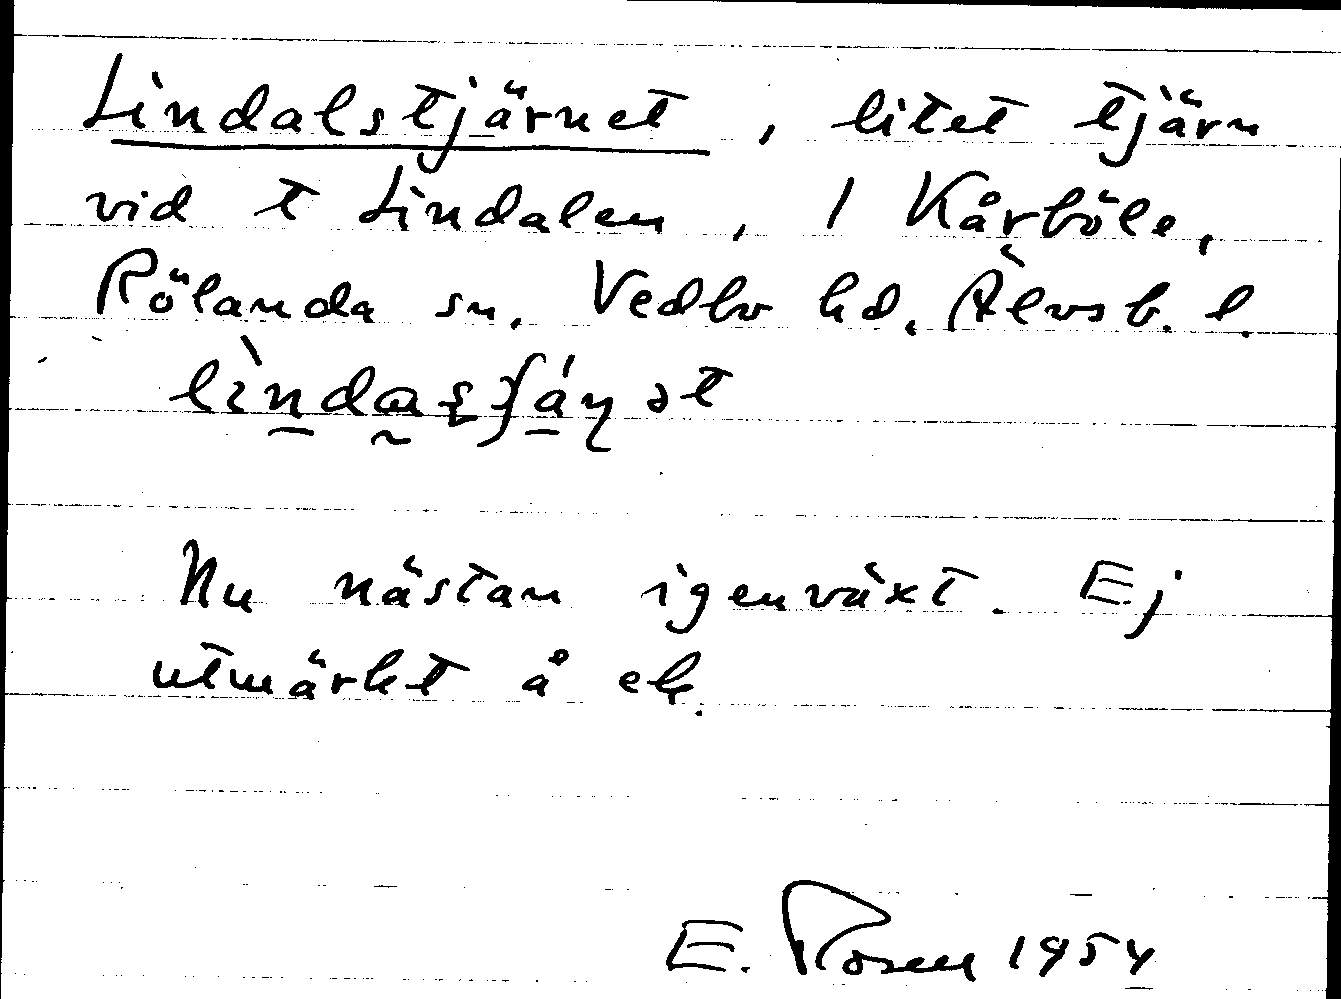 Lindalstjärnet, litet tjärn
vid t Lindalen, 1 Kårböle,
Rölanda sn, Vedbo hd, Älvsb. l.
Nu nästan igenväxt. Ej
utmärkt å ek.
E. Rosell 1954